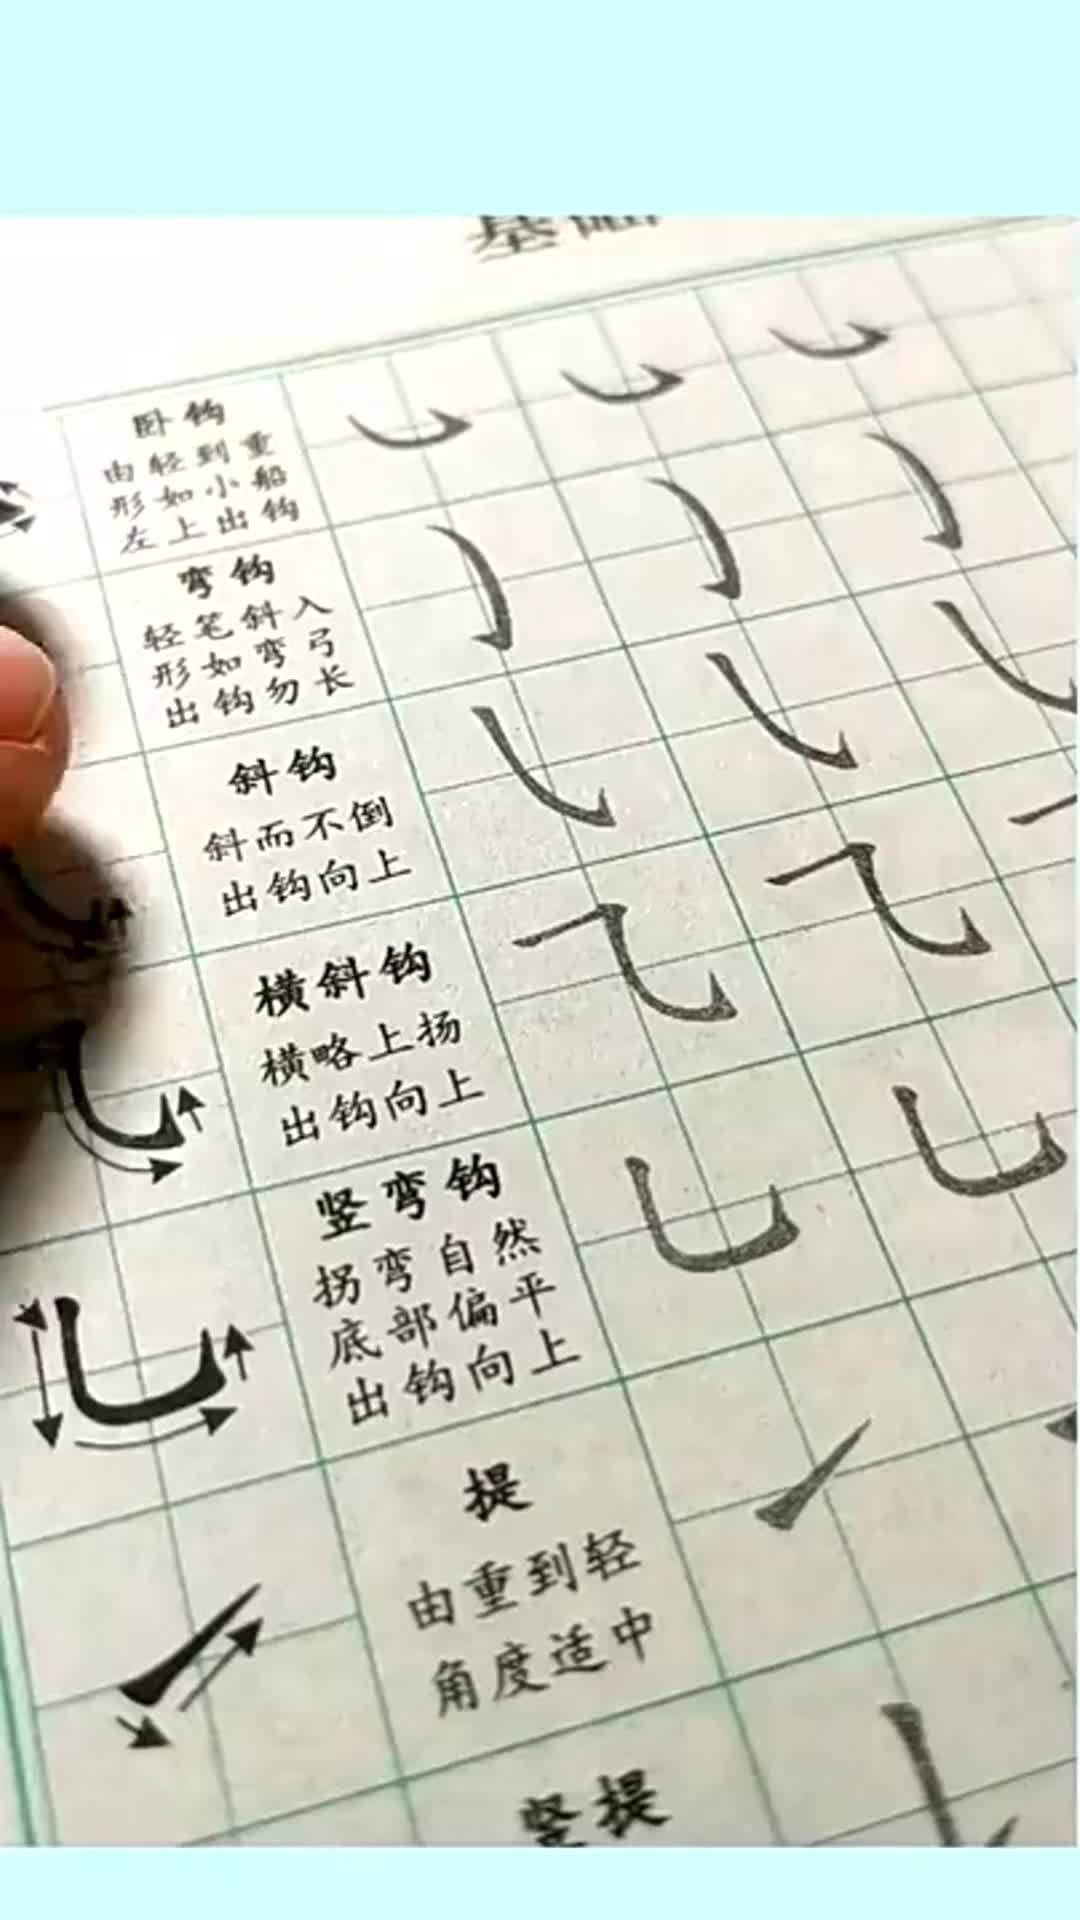 基础
卧钩
由轻到重
形如小船
左上出钩
弯钩
轻笔斜入
形如弯弓
出钩勿长
斜钩
斜而不倒
出钩向上
横斜钩
横略上扬
出钩向上
竖弯钩
拐弯自然
底部偏平
出钩向上
提
由重到轻
角度适中
竖提